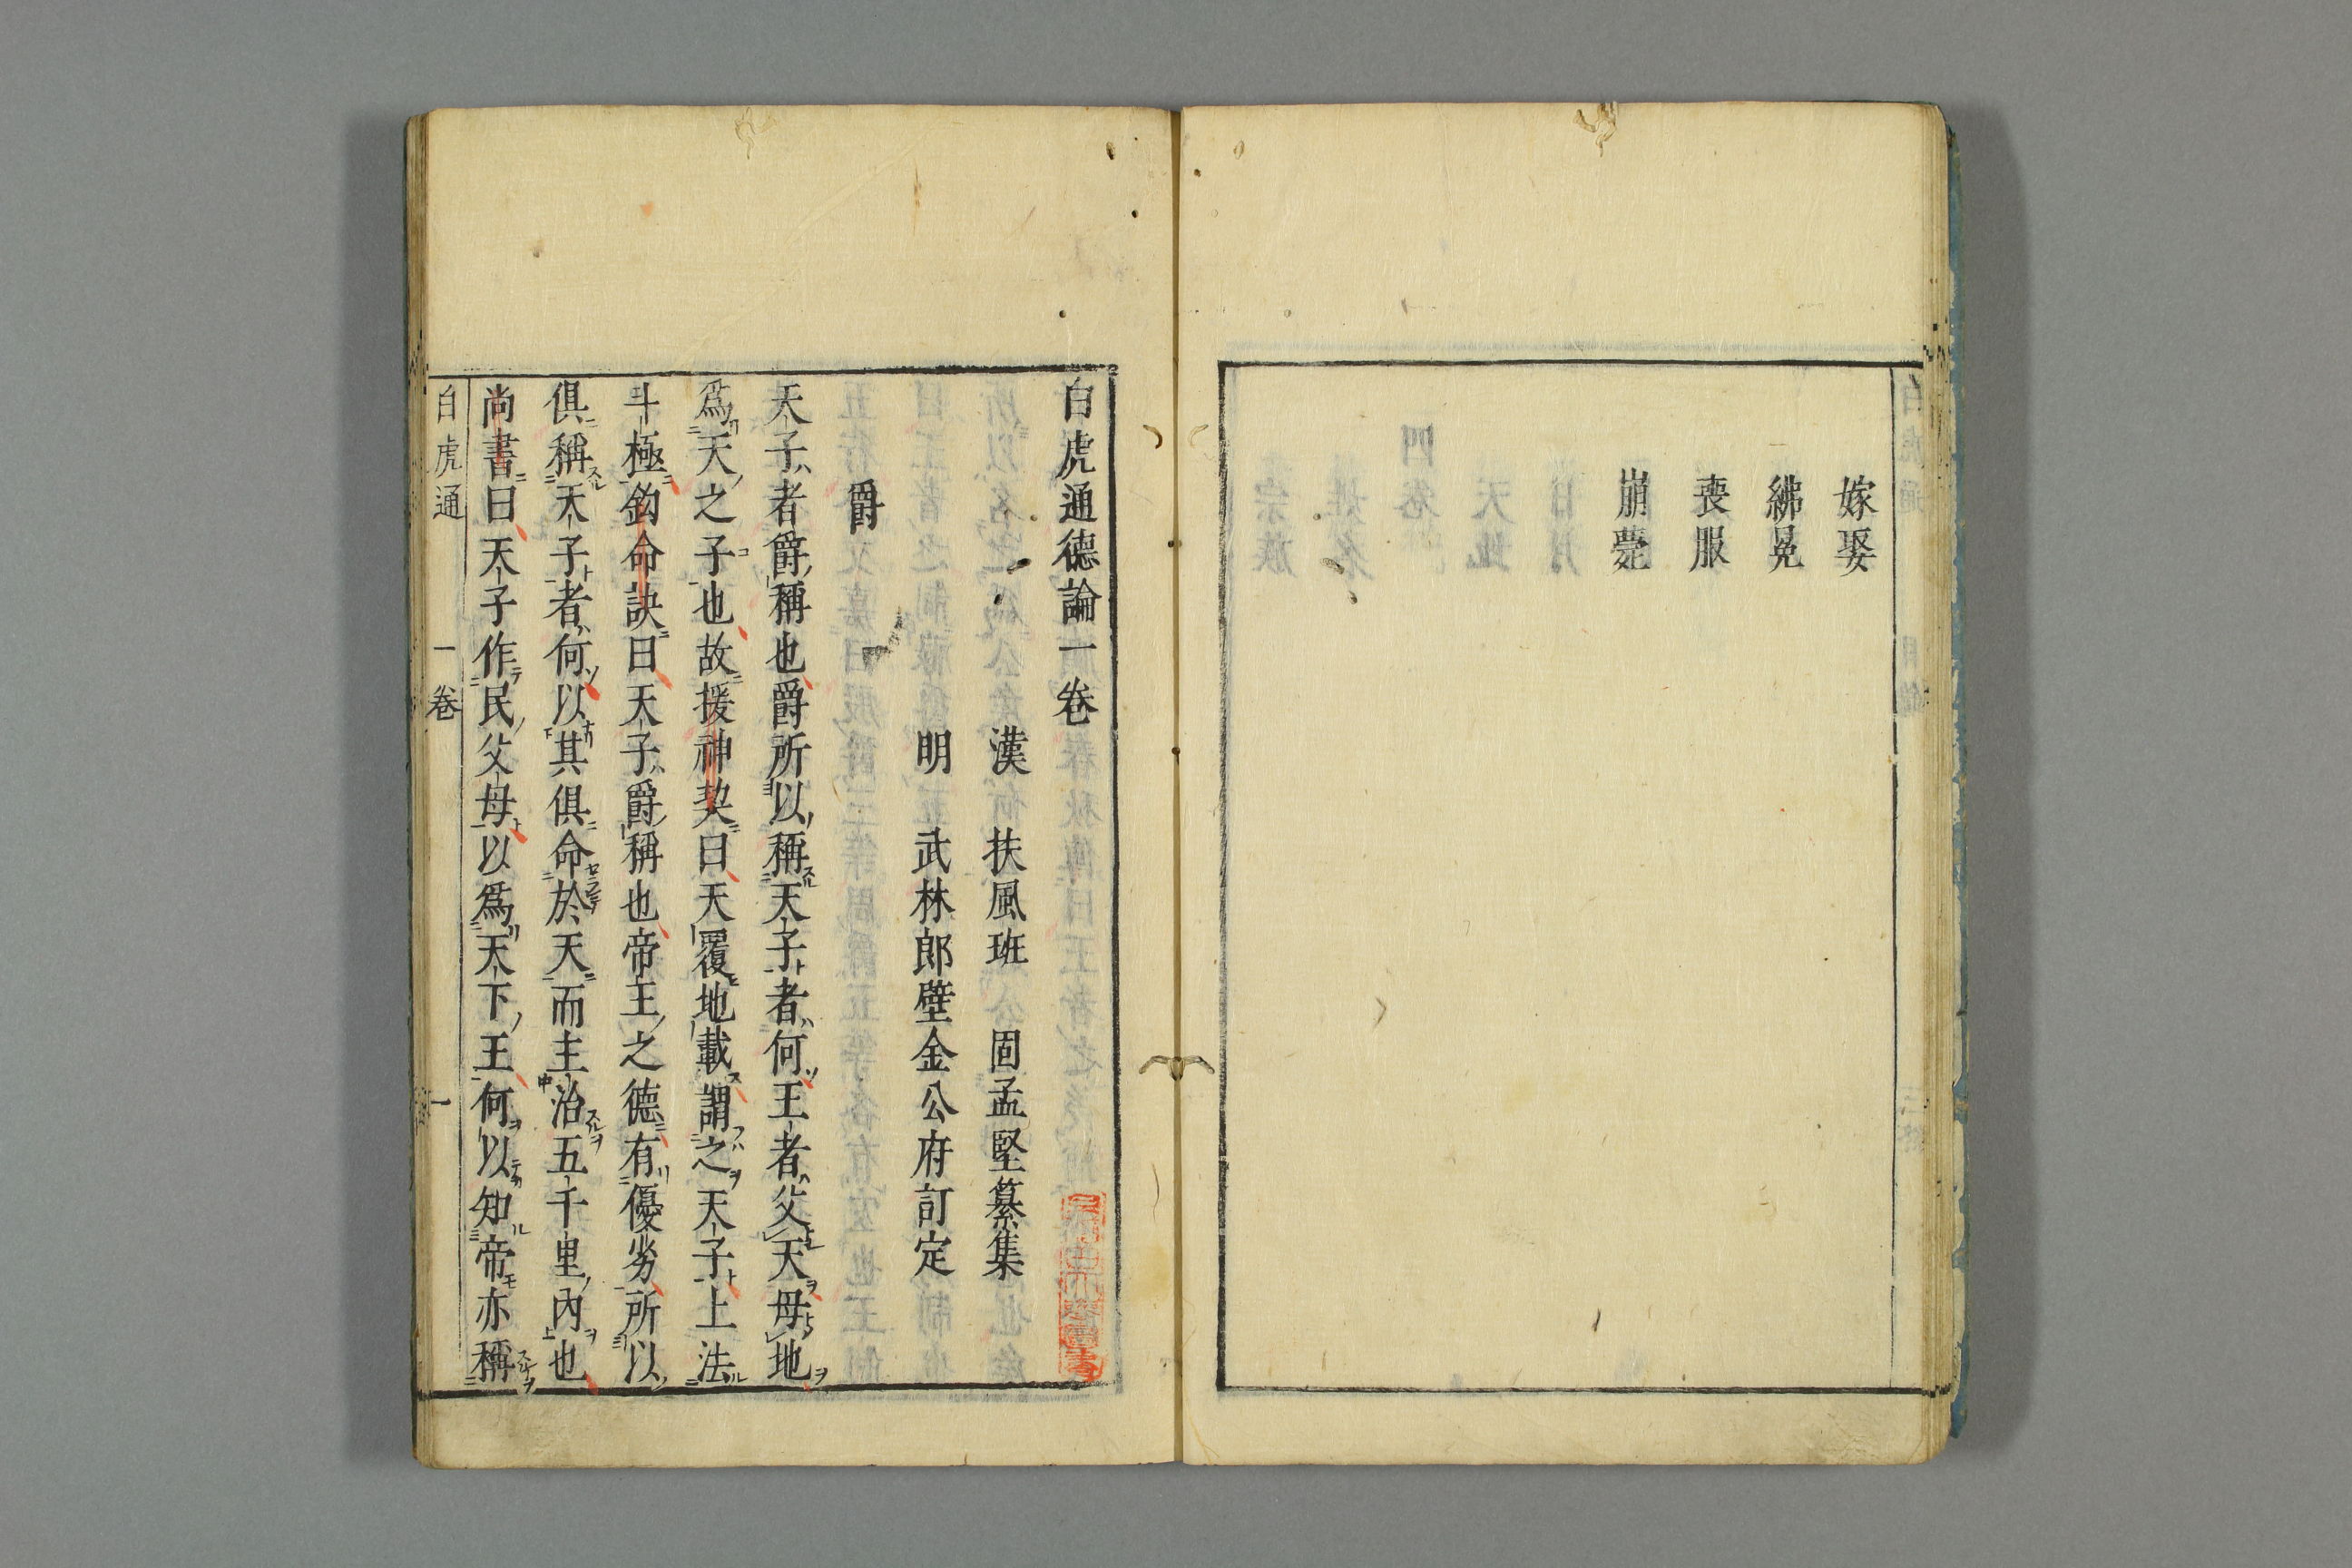 嫁娶
紼冕
喪服
崩薨
白虎通德論一卷
漢 扶風班 固孟堅纂集
明 武林郎壁金公府訂定
爵
天子者爵稱也爵所以稱天子者何王者父天母地
爲天之子也故援神契曰天覆地載謂之天子上法
斗極鈎命訣曰天子爵稱也帝王之德有優劣所以
俱稱天子者何以其俱命於天而主治五千里內也
尚書曰天子作民父母以爲天下王何以知帝亦稱
白虎通 一卷 一